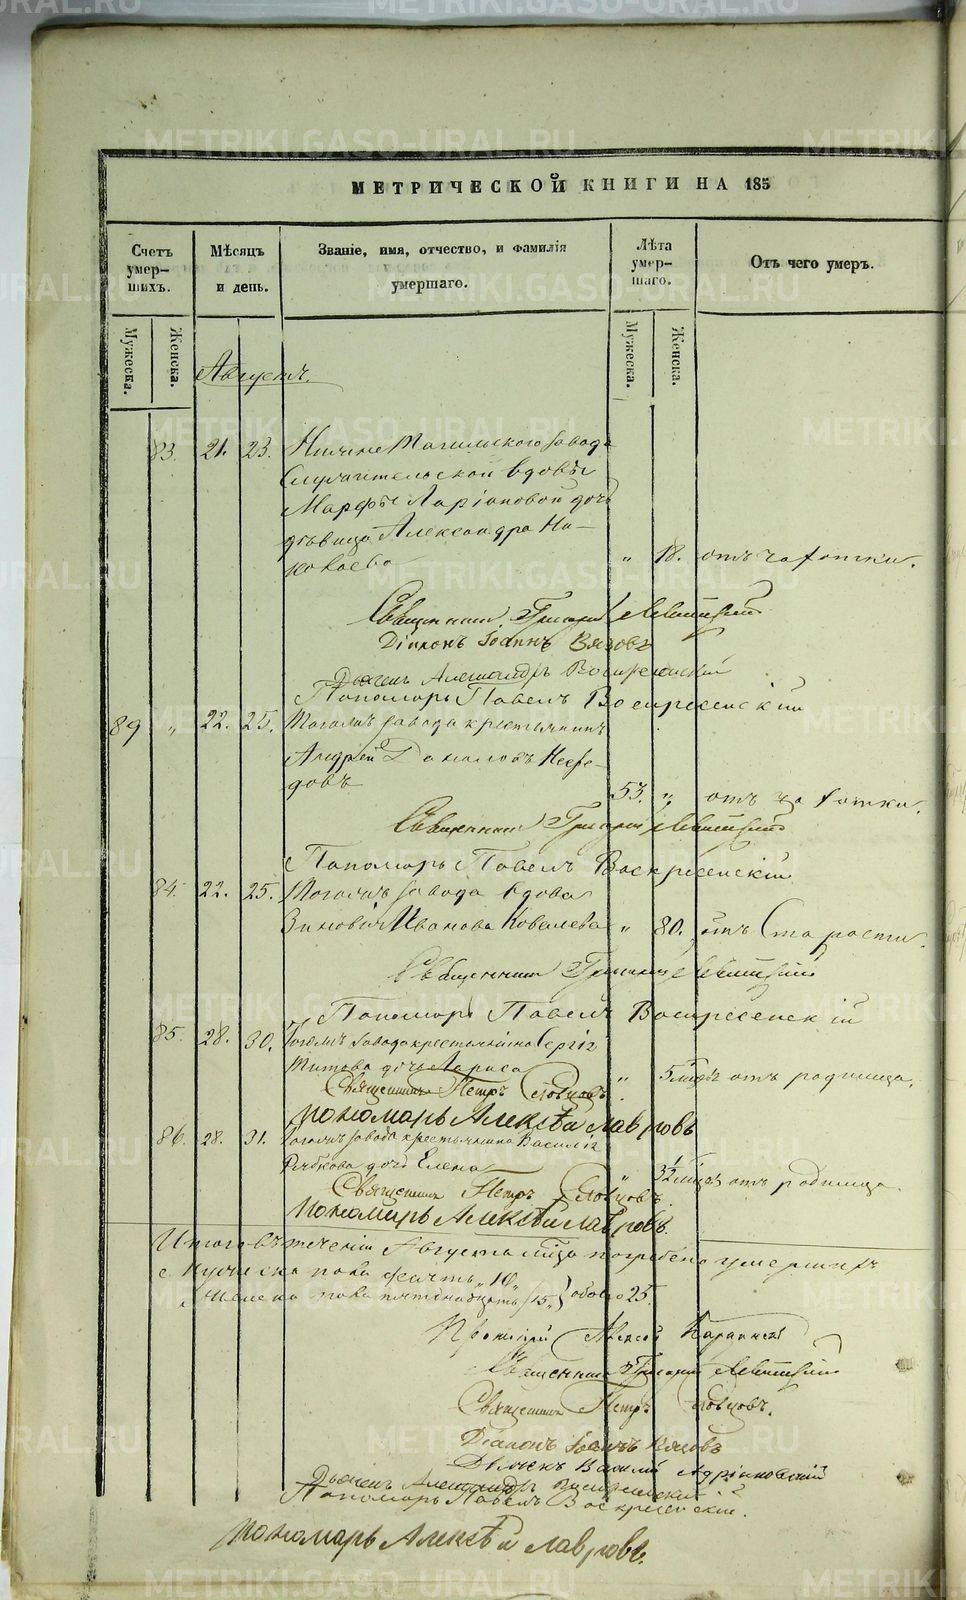 METRIKI.GASO-URAL.RU
МЕТРИЧЕСКОЙ КНИГИ НА 185
Счетъ умер-шихъ.
Мѣсяцъ и день.
Званіе, имя, отчество, и фамилія умершаго.
Лѣта умер-шаго.
Отъ чего умеръ.
Мужеска.
Женска.
Мужеска.
Женска.
Августъ.
83. 21. 23. Нижне Тагильскаго завода
Служительской вдовы
Марфы Ларіоновой дочь
дѣвица Александра
„ 18. отъ чахотки.
Священник Григорій Левитскій
Діаконъ Іоаннъ Вязовъ
Дьячекъ Александръ Воскресенскій
Пономарь Павелъ Воскресенскій
89 „ 22. 25. Тогожъ завода крестьянинъ
Андрей
довъ 53. „ отъ чахотки.
Священник Григорій Левитскій
Пономарь Павелъ Воскресенскій
84. 22. 25. Тогожъ завода вдова
Зиновія Иванова Ковалева „ 80. отъ старости.
Священник Григорій Левитскій
Пономарь Павелъ Воскресенскій
85. 28. 30. Тогожъ завода крестьянина Сергія
Титова дочь Лариса „ 5 отъ родимца.
Священник Петръ Словцовъ.
Пономарь Алексѣй Лавровъ
86. 28. 31. Тогожъ завода крестьянина Василія
дочь Елена „ 3½ отъ родимца.
Священник Петръ Словцовъ.
Пономарь Алексѣй Лавровъ.
Итого въ теченіи Августа м͠ца погребено умершихъ
Мужеска пола десять „10„
Женска пола пятнадцать „15„ } обоего 25.
Священник Григорій Левитскій
Священник Петръ Словцовъ.
Діаконъ Іоаннъ Вязовъ
Дьячекъ Василій Адріановскій
Дьячекъ Александръ Воскресенскій
Пономарь Павелъ Воскресенскій.
Пономарь Алексѣй Лавровъ.